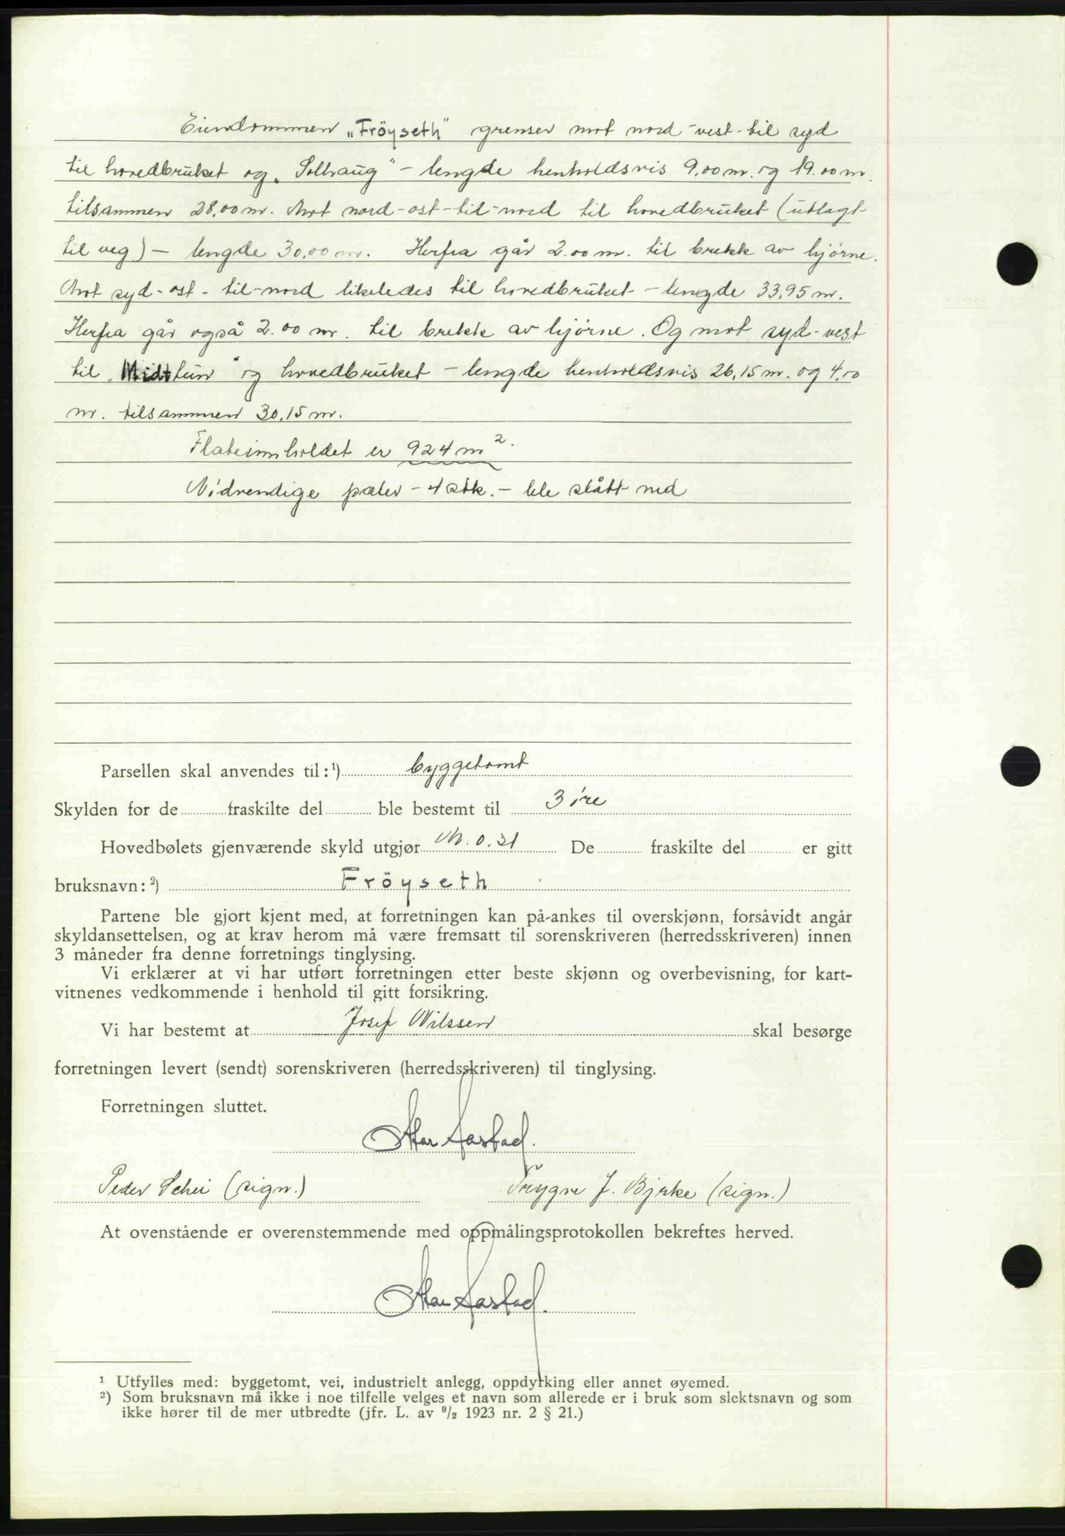 Eiendommen „Fröyseth" grenser mot nord-vest-til syd
til hovedbruket og „Solhaug" - lengde henholdsvis 9,00 m. og 19.00 m.
tilsammen 28,00 m. Mot nord-ost-til-nord til hovedbruket (utlagt
til veg) - lengde 30,00 m. Herfra går 2.00 m. til brekk av hjørne.
Mot syd-ost-til-nord likeledes til hovedbruket - lengde 33,95 m.
Herfra går også 2.00 m. til brekk av hjørne. Og mot syd-vest
til „Midttun" og hovedbruket - lengde henholdsvis 26,15 m. og 4,00
m. tilsammen 30,15 m.
Flateinnholdet er 924 m².
Nødvendige pæler - 4 stk. - ble slått ned
Parsellen skal anvendes til:¹) byggetomt
Skylden for de fraskilte del ble bestemt til 3 øre
Hovedbølets gjenværende skyld utgjør M. 0.31 De fraskilte del er gitt
bruksnavn:²) Fröyseth
Partene ble gjort kjent med, at forretningen kan på-ankes til overskjønn, forsåvidt angår
skyldansettelsen, og at krav herom må være fremsatt til sorenskriveren (herredsskriveren) innen
3 måneder fra denne forretnings tinglysing.
Vi erklærer at vi har utført forretningen etter beste skjønn og overbevisning, for kart-
vitnenes vedkommende i henhold til gitt forsikring.
Vi har bestemt at Josef Nilssen skal besørge
forretningen levert (sendt) sorenskriveren (herredsskriveren) til tinglysing.
Forretningen sluttet.
Peder Schei (sign.) Trygve J. Bjerke (sign.)
At ovenstående er overenstemmende med oppmålingsprotokollen bekreftes herved.
¹ Utfylles med: byggetomt, vei, industrielt anlegg, oppdyrking eller annet øyemed.
²) Som bruksnavn må ikke i noe tilfelle velges et navn som allerede er i bruk som slektsnavn og som
ikke hører til de mer utbredte (jfr. L. av ⁹/₂ 1923 nr. 2 § 21.)